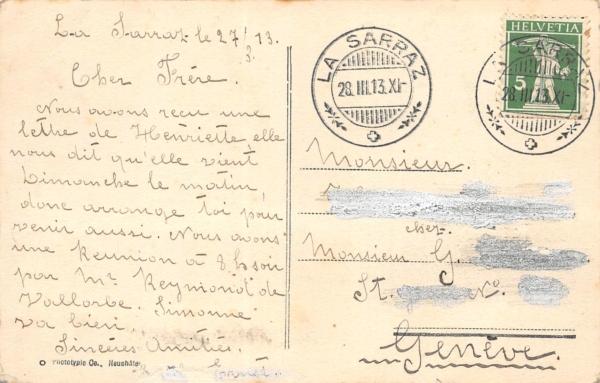 La Sarraz le 27/3.13.
Cher Frère.
Nous avons reçu une
lettre de Henriette elle
nous dit qu'elle vient
Dimanche le matin,
donc arrange toi pour
venir aussi. Nous avons
une Reunion à 8 h soir
par Mr Reymond de
Vallorbe. Simone
va bien.
Sincères Amitiés.
Phototypie Co., Neuchâtel
LA SARRAZ
28.III.13.XI-
HELVETIA
5
LA SARRAZ
28.III.13.XI-
Monsieur.
chez
Monsieur G.
St. No.
Genève.